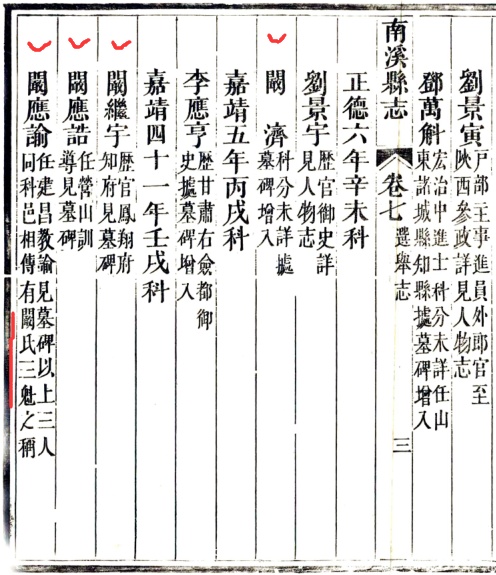 劉景寅戶部主事進員外郎官至
陝西參政詳見人物志
鄧萬斛宏治中進士科分未詳任山
東諸城縣知縣據墓碑增入
南溪縣志 卷七 選舉志 三
正德六年辛未科
劉景宇歷官御史詳
見人物志
闞濟科分未詳據
墓碑增入
嘉靖五年丙戌科
李應亨歷甘肅右僉都御
史據墓碑增入
嘉靖四十一年壬戌科
闞繼宇歷官鳳翔府
知府見墓碑
闞應誥任營山訓
導見墓碑
闞應諭任建昌教諭見墓碑以上三人
同科邑相傳有闞氏三魁之稱